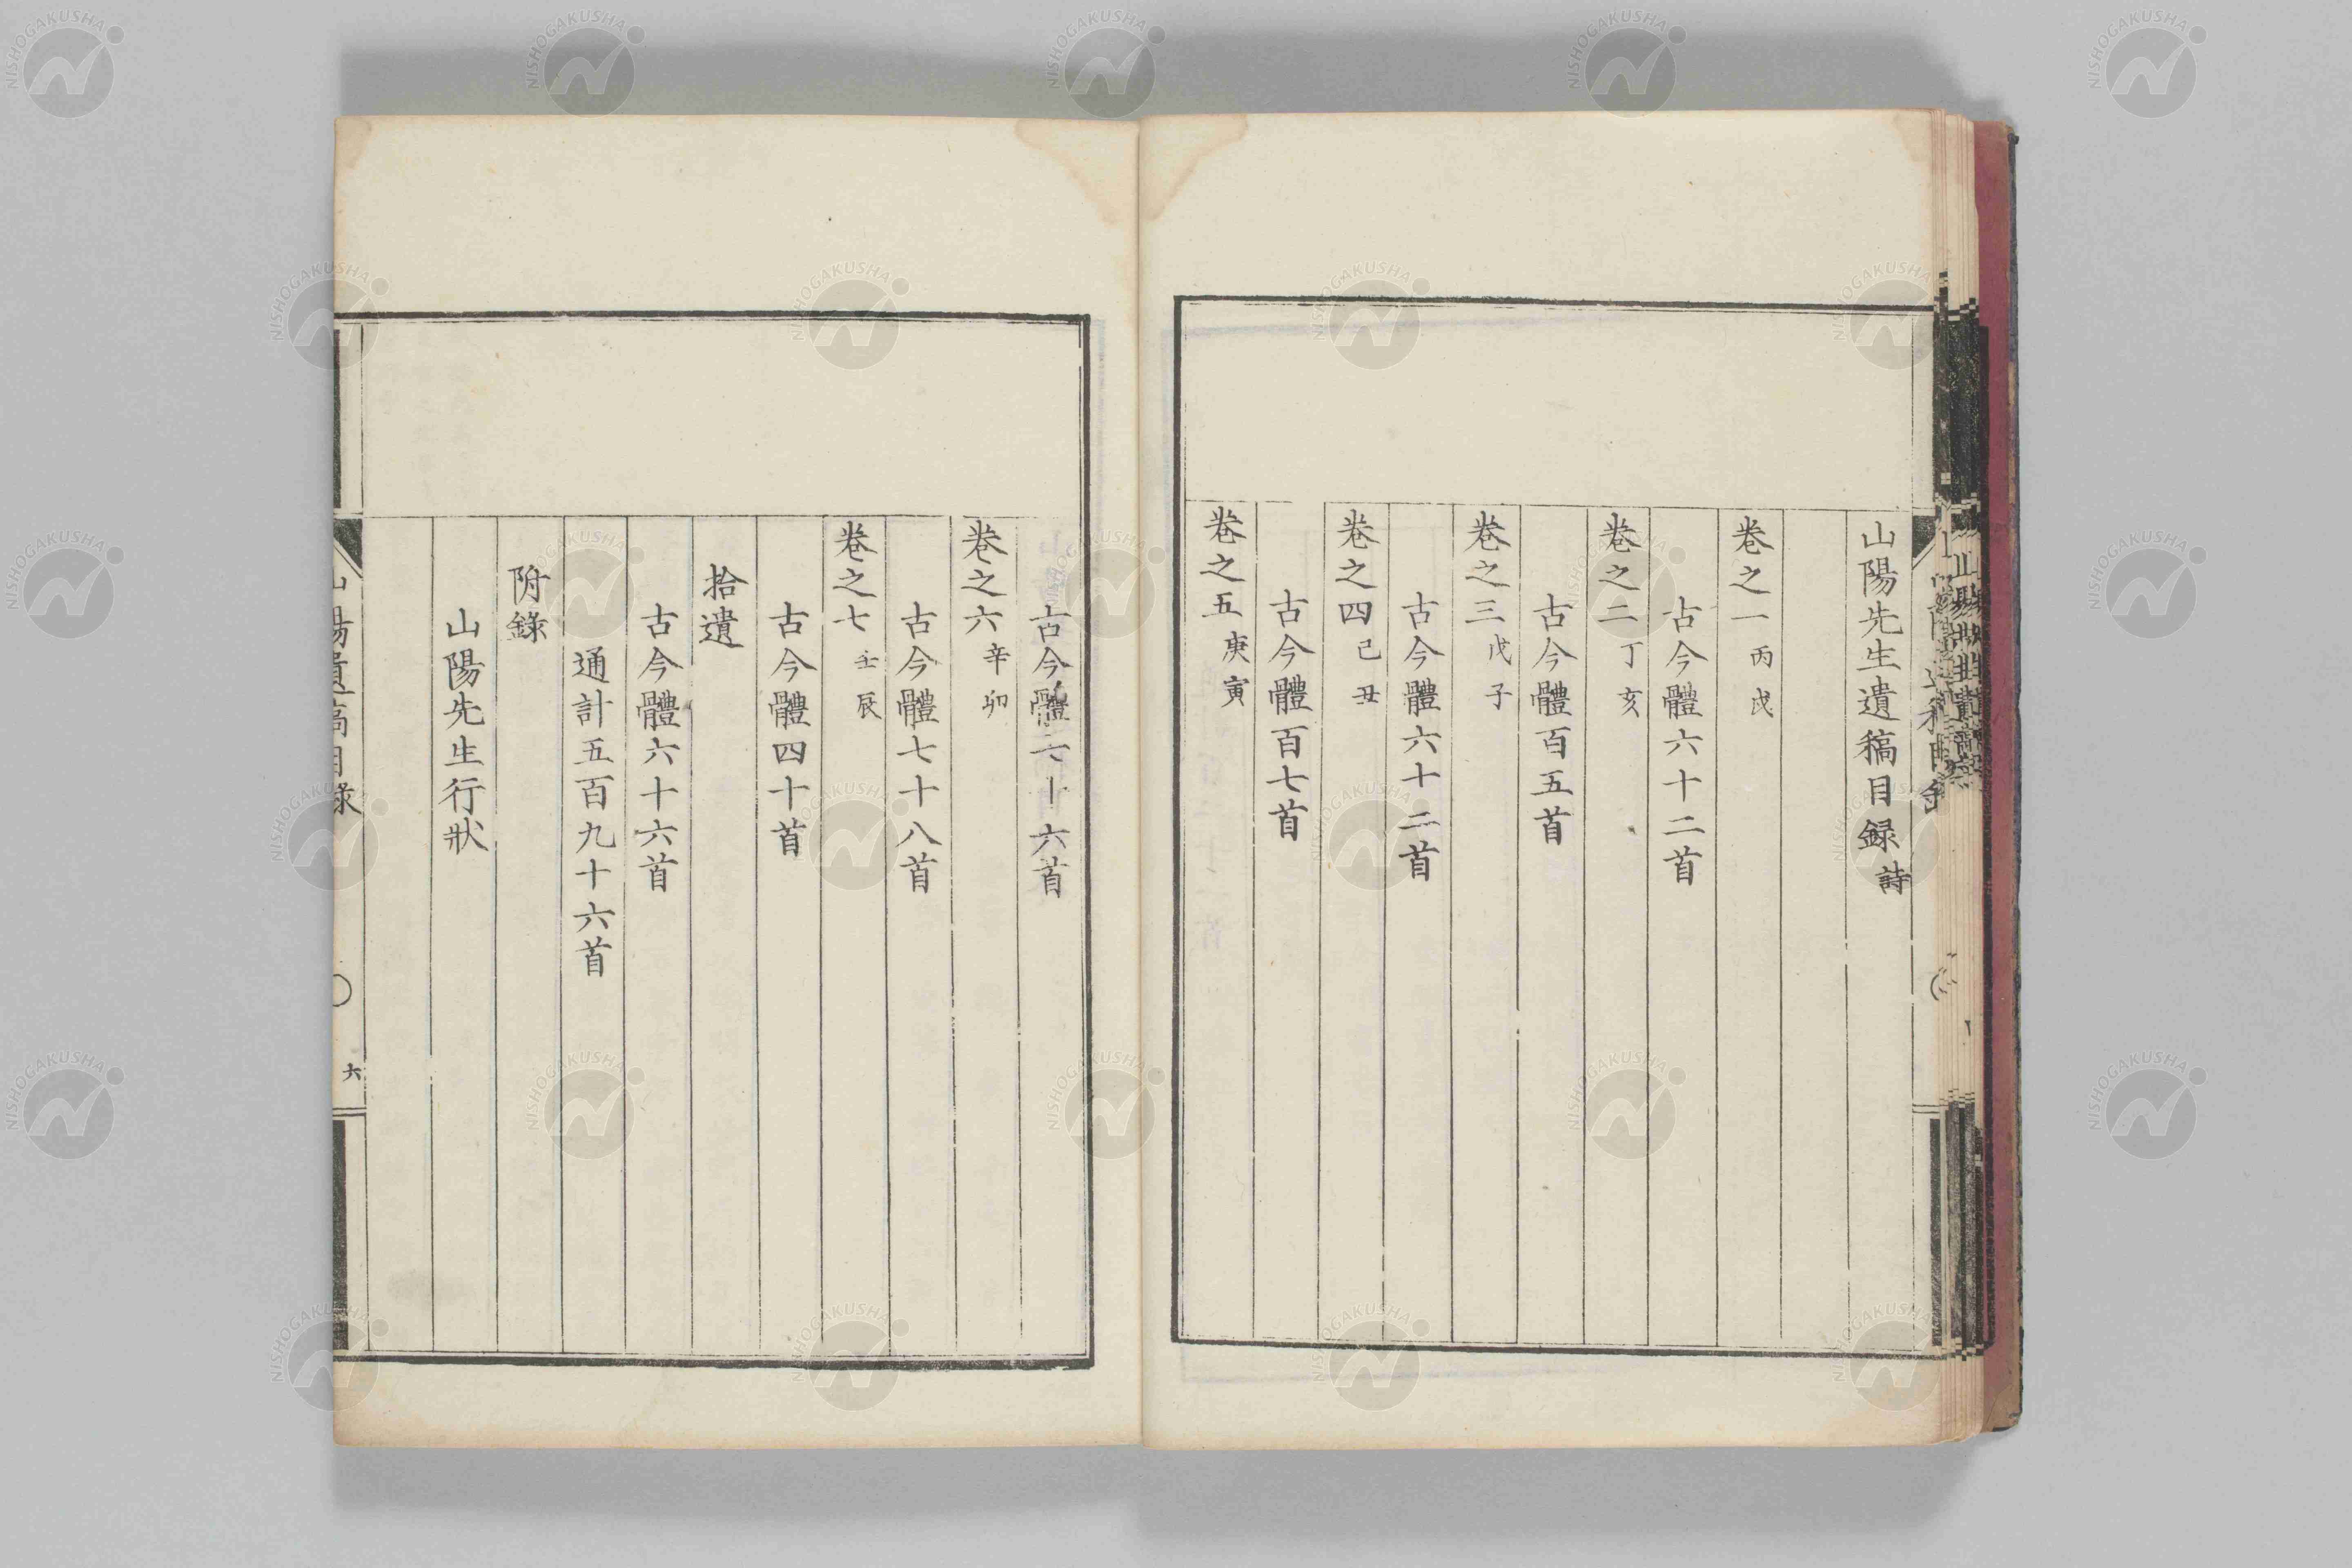 山陽先生遺稿目録 詩
卷之一 丙戌
古今體六十二首
卷之二 丁亥
古今體百五首
卷之三 戊子
古今體六十二首
卷之四 己丑
古今體百七首
卷之五 庚寅
古今體七十六首
卷之六 辛卯
古今體七十八首
卷之七 壬辰
古今體四十首
拾遺
古今體六十六首
通計五百九十六首
附錄
山陽先生行狀
山陽遺稿目錄 六
NISHOGAKUSHA